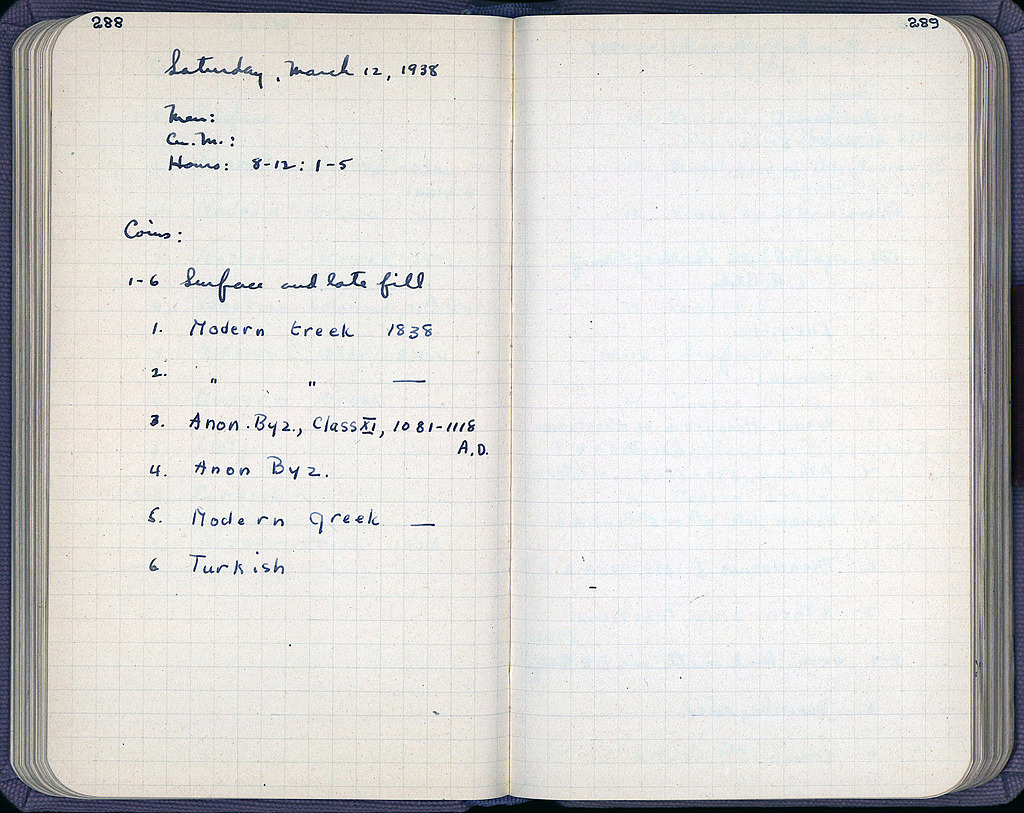 288
Saturday, March 12, 1938
Men:
Cu. M.:
Hours: 8-12: 1-5
Coins:
1-6 Surface and late fill
1. Modern Greek 1838
2. " " —
3. Anon. Byz., Class XI, 1081-1118
A.D.
4. Anon Byz.
5. Modern Greek —
6 Turkish
289